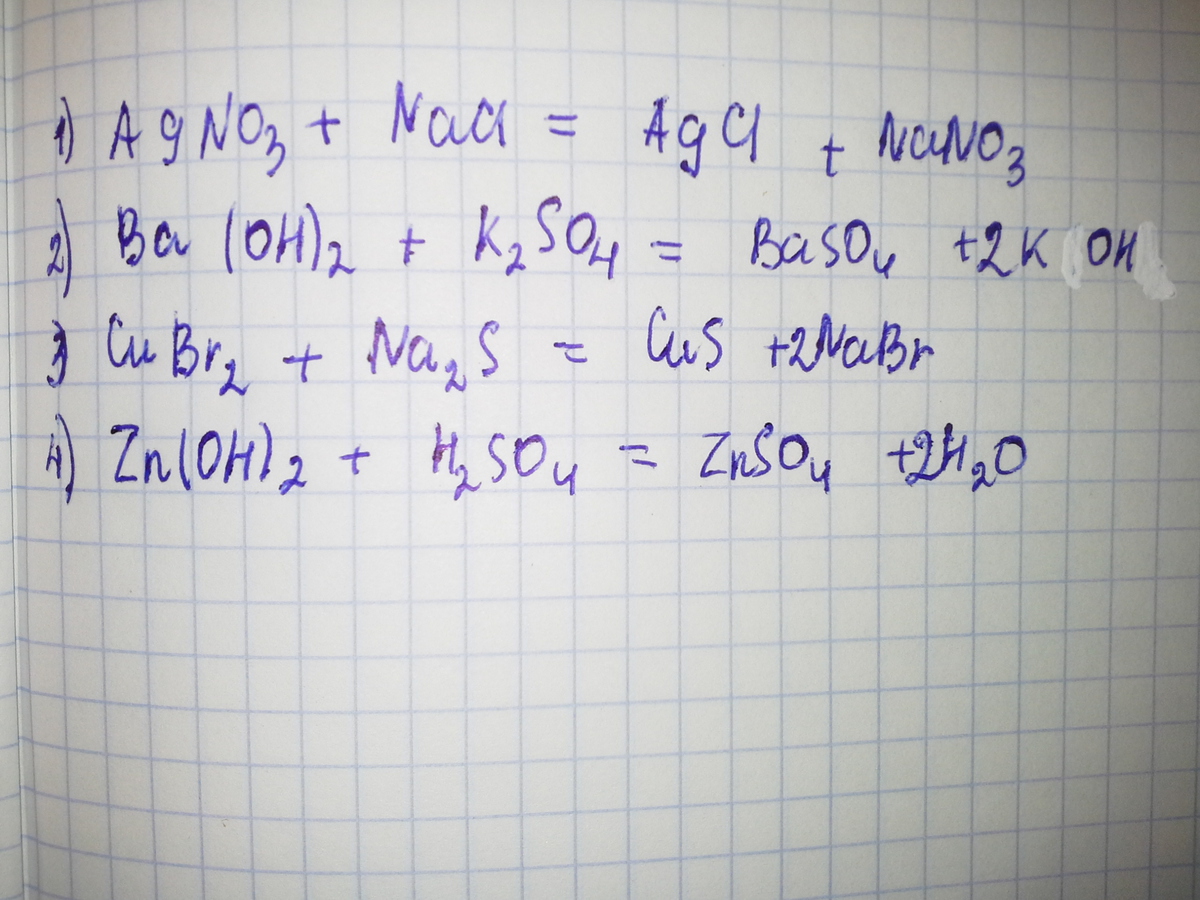 1) AgNO3 + NaCl = AgCl + NaNO3
2) Ba (OH)2 + K2SO4 = BaSO4 +2K OH
3) CuBr2 + Na2S = CuS +2NaBr
4) Zn(OH)2 + H2SO4 = ZnSO4 +2H2O